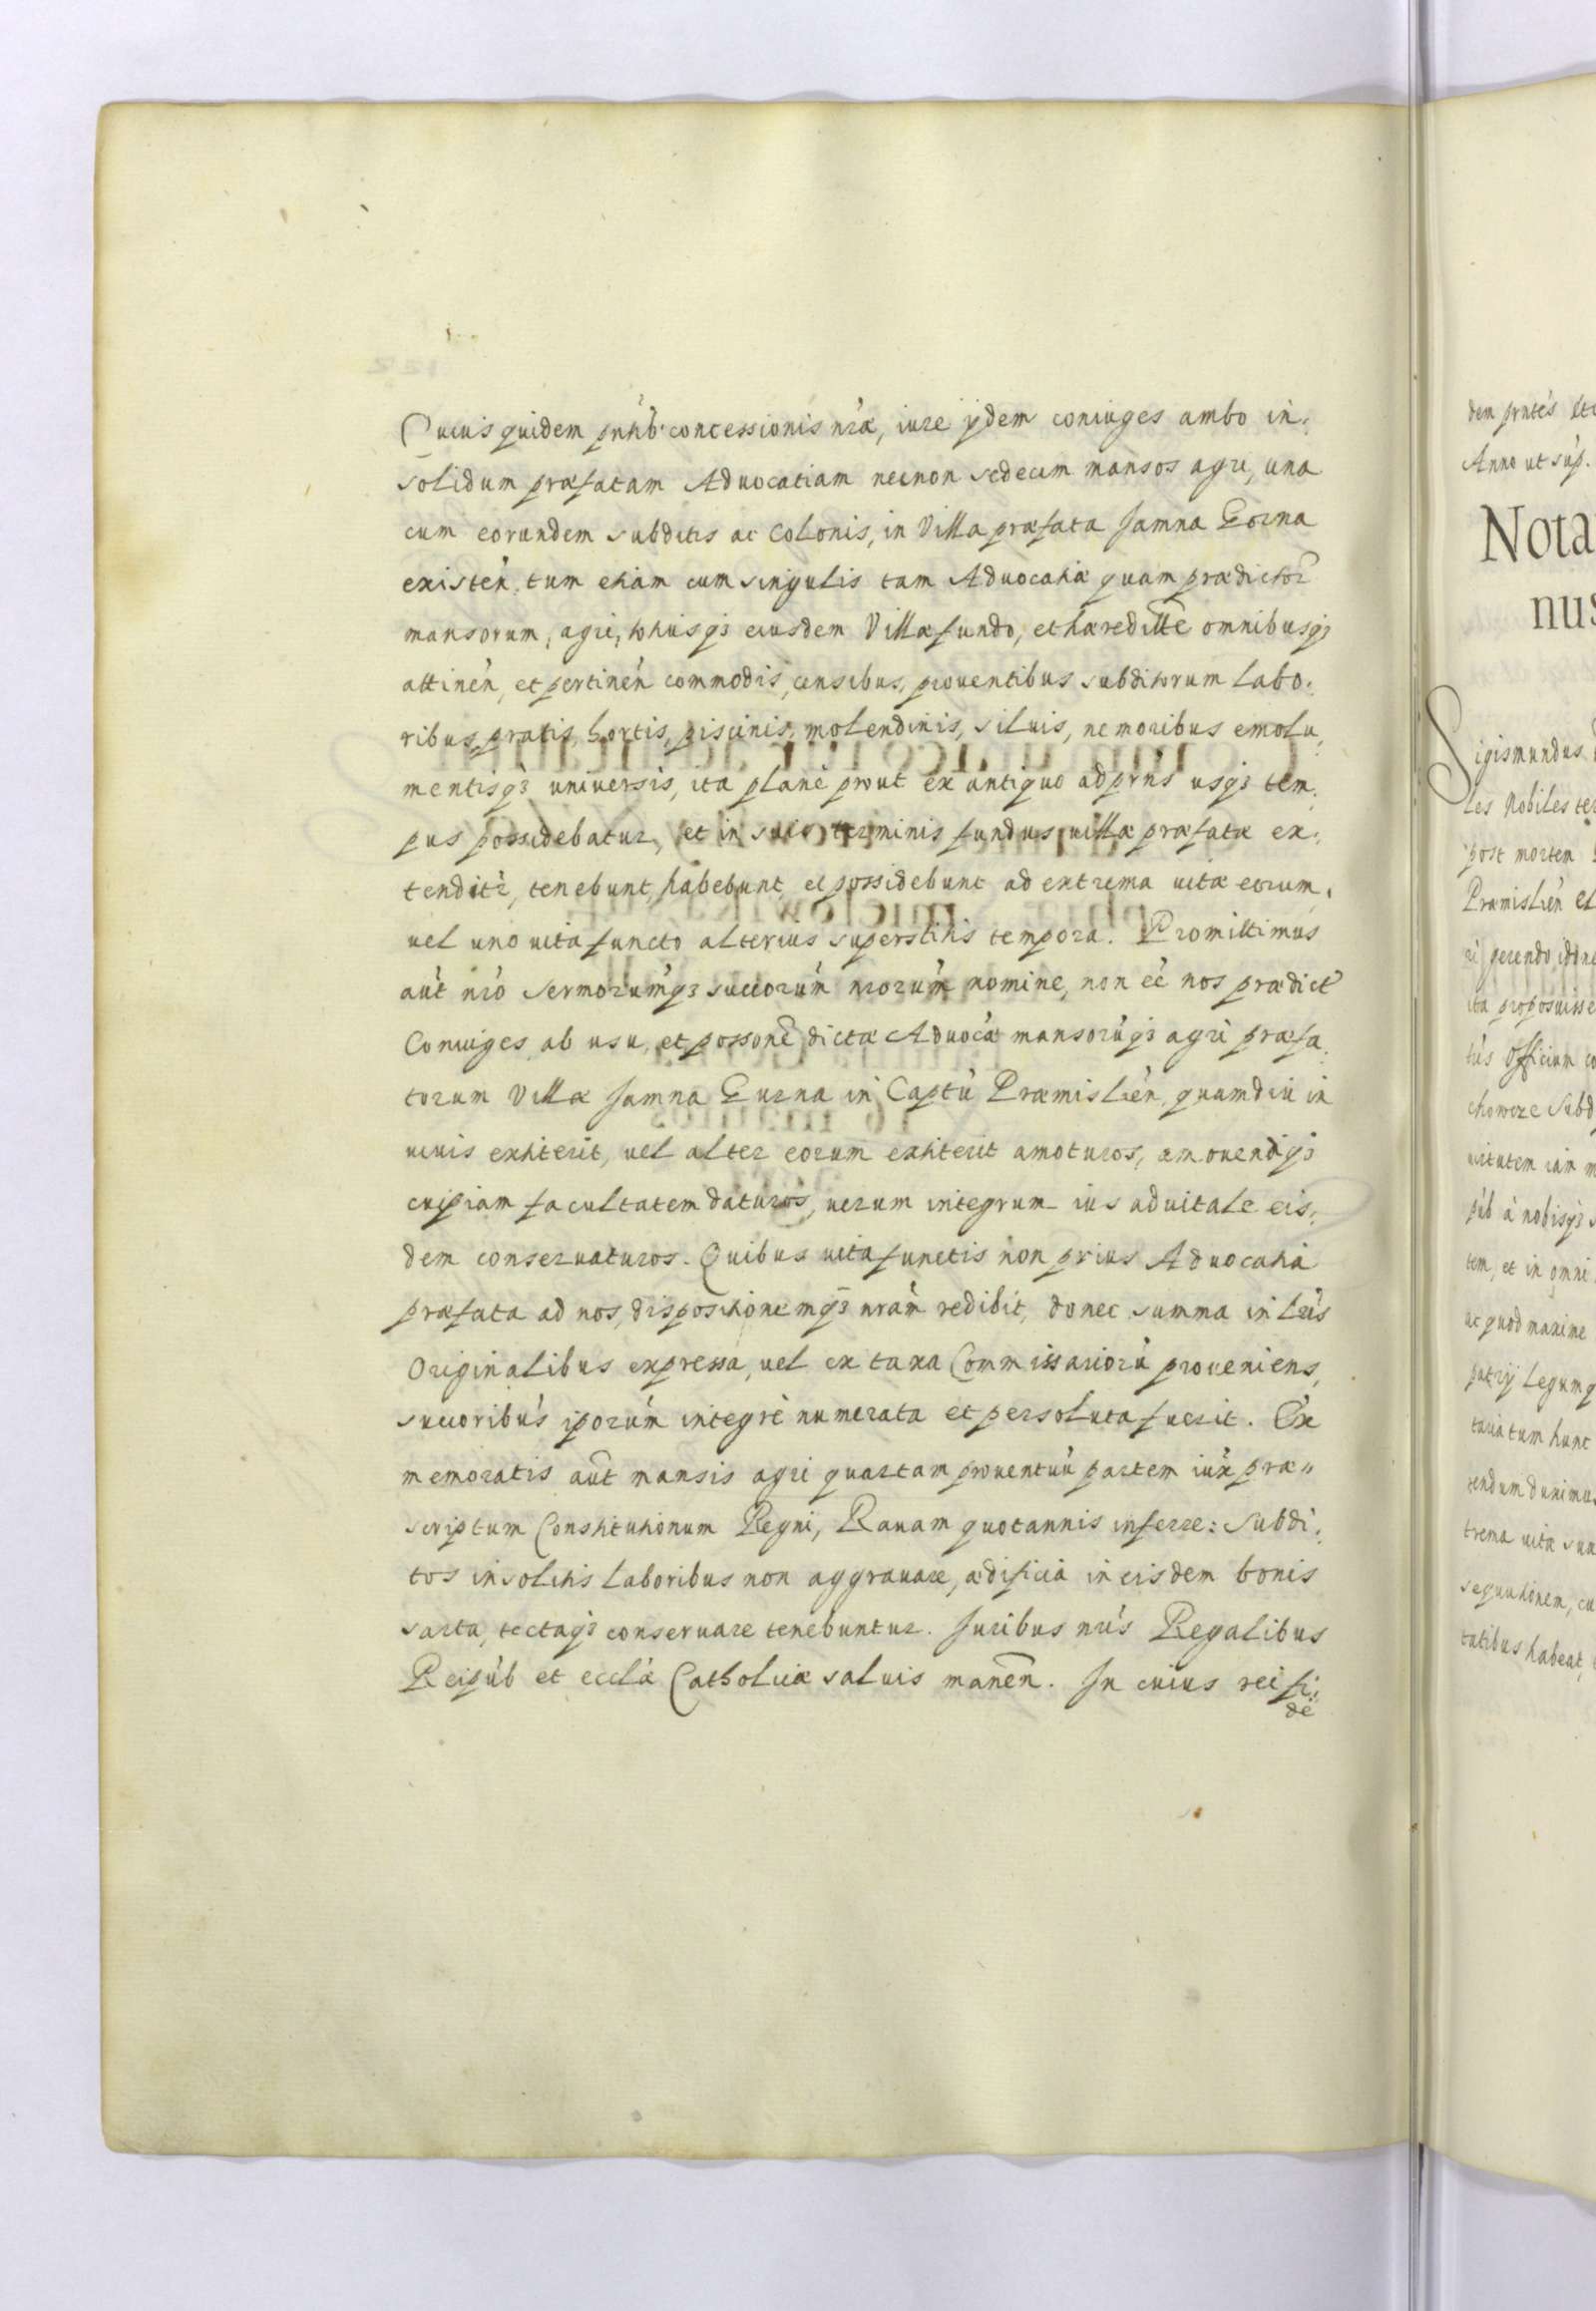 Cuius quidem pñtib: concessionis nr̃æ, iure ijdem coniuges ambo in:
solidum præfatam Aduocatiam necnon sedecim mansos agri, una
cum eorundem subditis ac colonis, in Villa præfata Jamna Gorna
existeń. tum etiam cum singulis tam Aduocatiæ quam prædictor̃
mansorum, agri, totiusq3 eiusdem Villæ fundo, et hæreditte omnibusq3
attineń, et pertineń commodis, censibus, prouentibus subditorum labo:
ribus, pratis, hortis, piscinis, molendinis, siluis, nemoribus emolu:
mentisq3 uniuersis, ita planè prout ex antiquo ad prns usq3 tem:
pus possidebatur, et in suis terminis fundus uillæ præfatæ ex:
tenditr̃, tenebunt, habebunt, et possidebunt ad extrema uitæ eorum,
uel uno uita functo alterius superstitis tempora. Promittimus
aút nró Sermorumq3 succorúm nrorúm nomine, non eé nos prædict
Coniuges ab usu, et possone dictæ Aduocæ mansorúq3 agri præfa:
torum Villæ Jamna Gurna in Captú Præmislień, quamdiu in
uiuis extiterit, uel alter eorum extiterit amoturos, amouendiq3
cuipiam facultatem daturos, uerum integrum ius aduitale eis:
dem conseruaturos. Quibus uita functis non prius Aduocatia
præfata ad nos, dispositionemq3 nram redibit, donec summa in Lris
Originalibus expressa, uel ex taxa Commissariorú proueniens,
succoribus iporúm integrè numerata et persoluta fuerit. Ex
memoratis aut mansis agri quartam prouentuú partem iux præ"
scriptum Constitutionum Regni, Rauam quotannis inferre: Subdi:
tos insolitis laboribus non aggrauare, ædificia in eisdem bonis
sarta, tectaq3 conseruare tenebuntur. Juribus nris Regalibus
Reipúb et ecclæ Catholicæ saluis maneń. In cuius rei fi:
dé
dem prntes
Anno ut sup.
Nota
nus
Sigismundus
les Nobiles
post mortem
Præmislień et
gerendo
ita proposuisse
tús Officium
uirtutem iam
púb à nobisq3
tem, et in omni
ac quod maxime
patrij Legumq
tum hunc
duximus
trema uitæ
tatibus habeat,